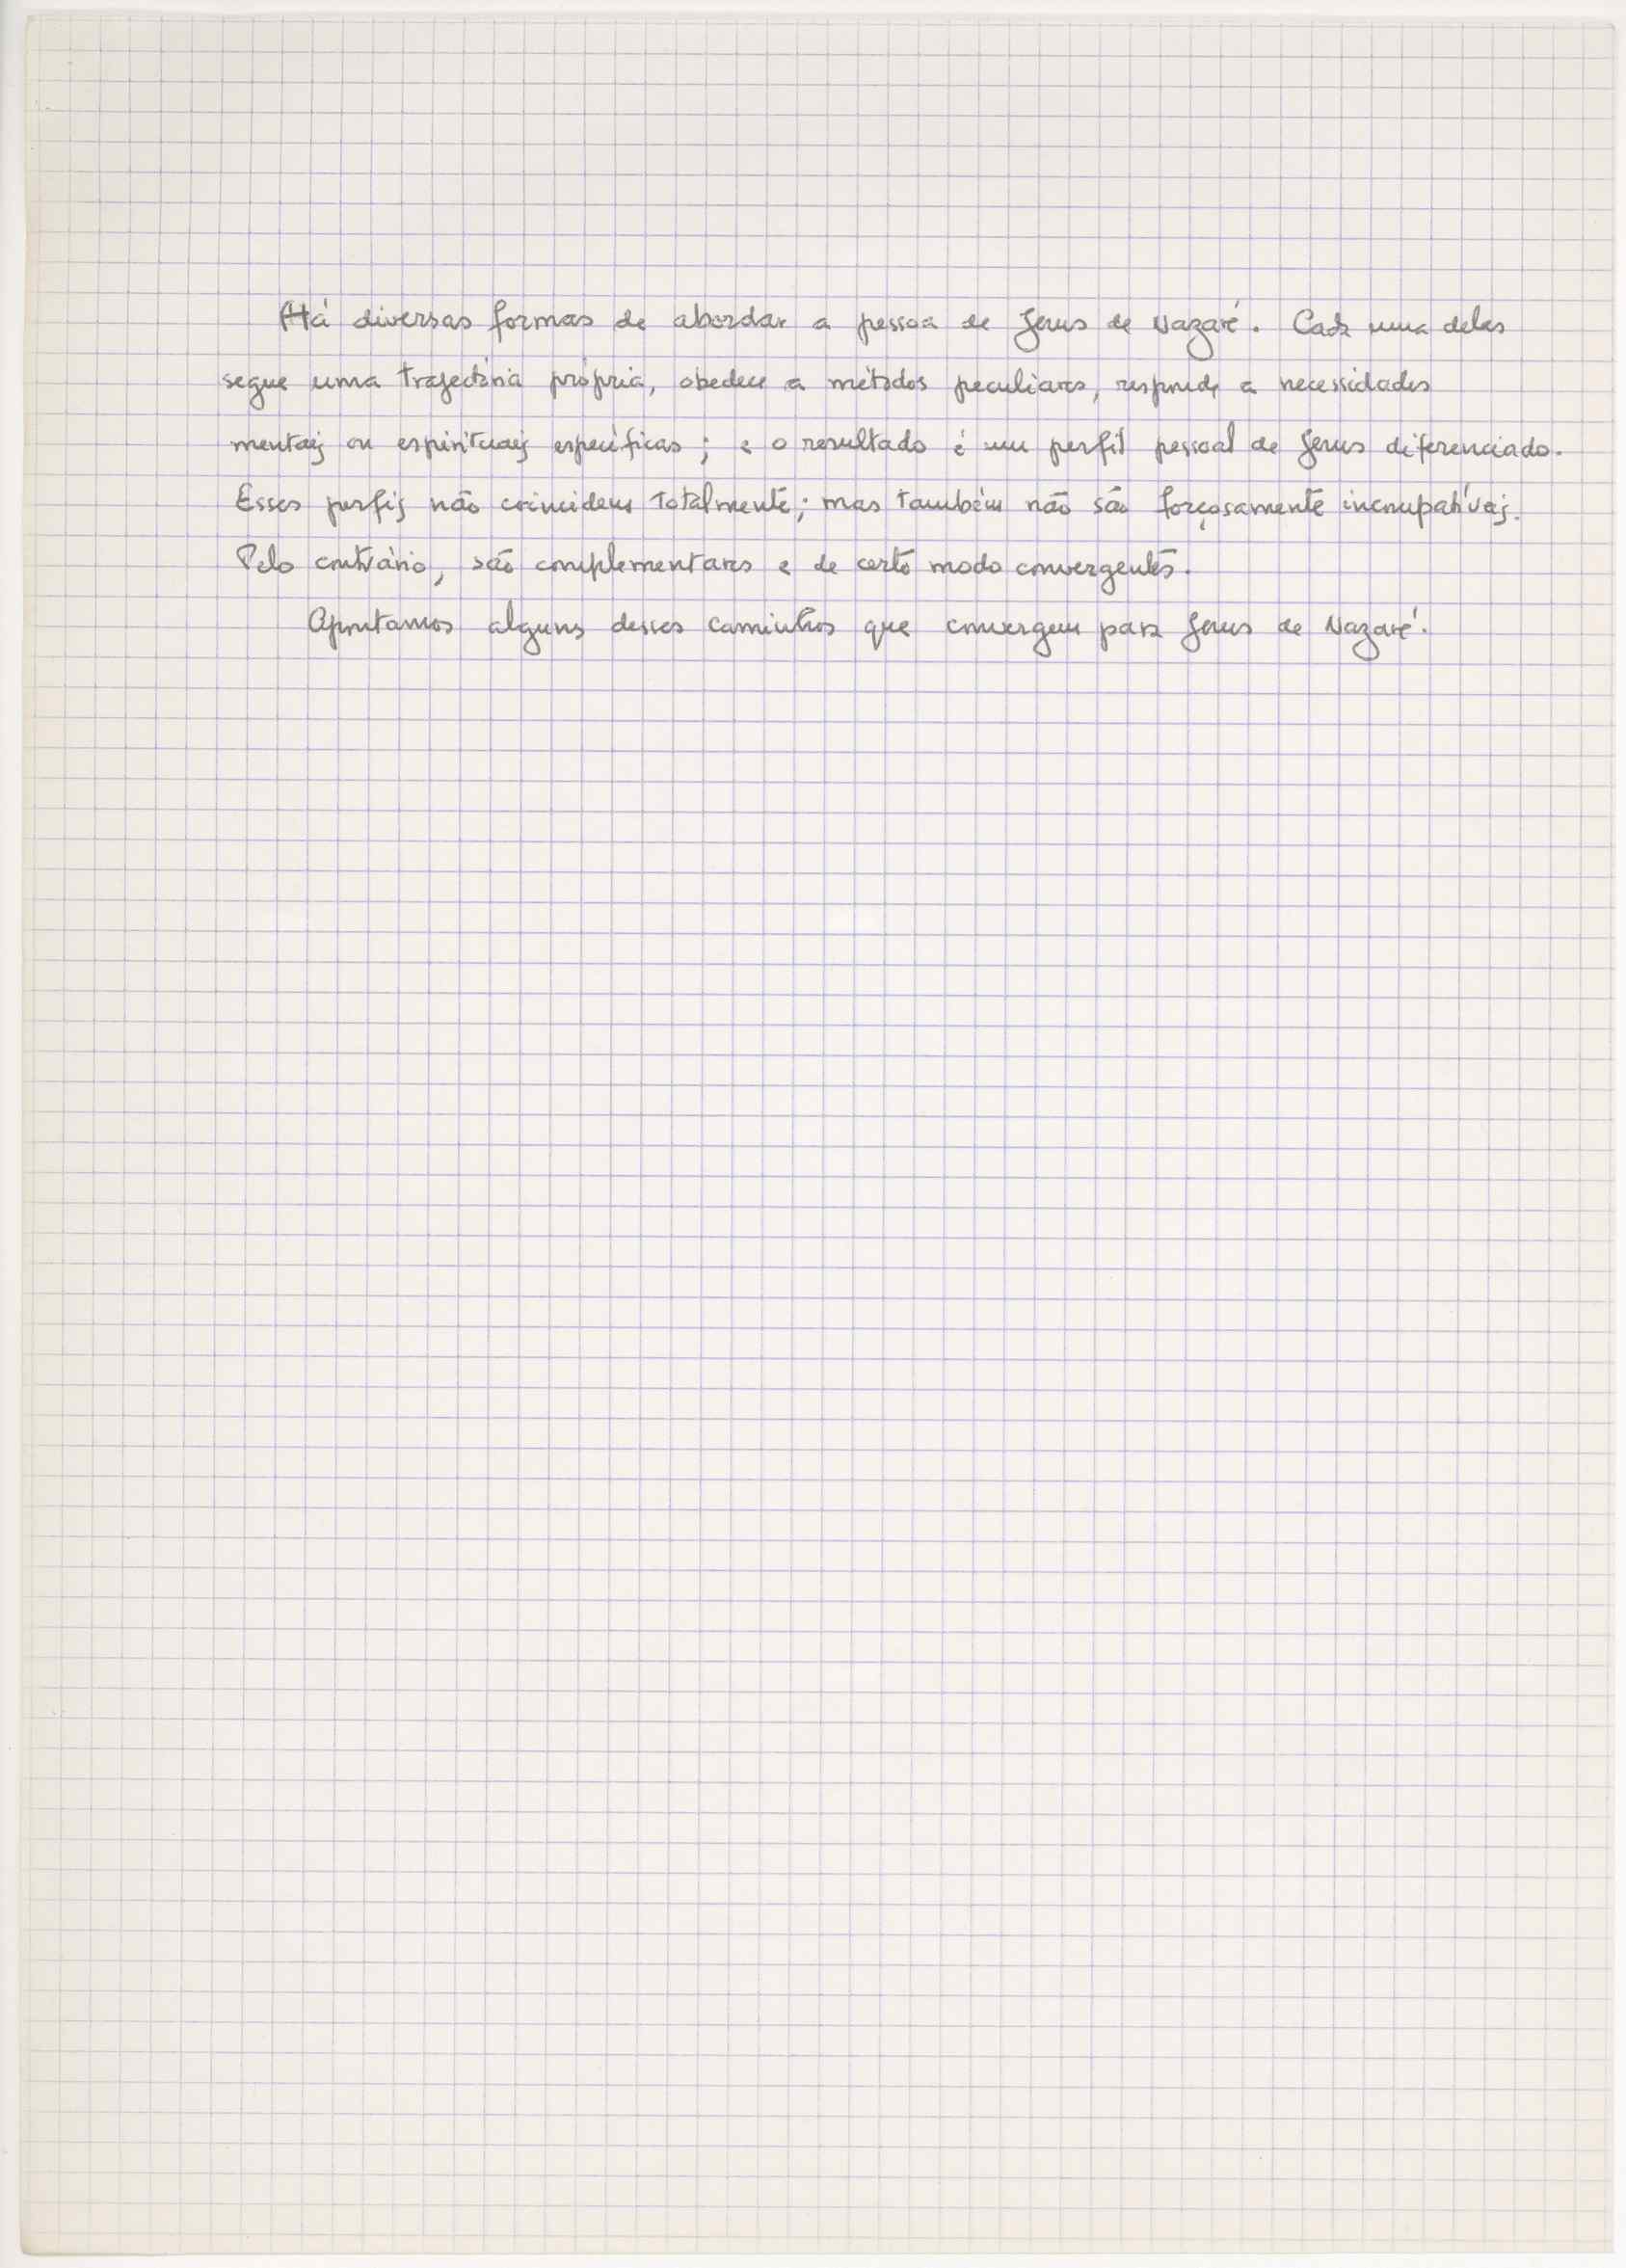 Há diversas formas de abordar a pessoa de Jesus de Nazaré. Cada uma delas
segue uma trajectória própria, obedece a métodos peculiares, responde a necessidades
mentais ou espirituais específicas; e o resultado é um perfil pessoal de Jesus diferenciado.
Esses perfis não coincidem totalmente; mas também não são forçosamente incompatíveis.
Pelo contrário, são complementares e de certo modo convergentes.
Apontamos alguns desses caminhos que convergem para Jesus de Nazaré.